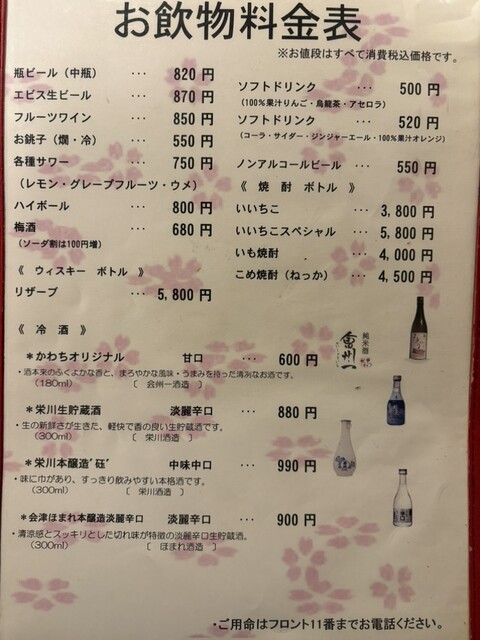 お飲物料金表
※お値段はすべて消費税込価格です。
瓶ビール（中瓶） ··· 820 円
エビス生ビール ··· 870 円
フルーツワイン ··· 850 円
お銚子（燗・冷） ··· 550 円
各種サワー ··· 750 円
（レモン・グレープフルーツ・ウメ）
ハイボール ··· 800 円
梅酒 ··· 680 円
（ソーダ割は100円増）
《 ウィスキー ボトル 》
リザーブ ··· 5,800 円
ソフトドリンク ··· 500 円
（100％果汁りんご・烏龍茶・アセロラ）
ソフトドリンク ··· 520 円
（コーラ・サイダー・ジンジャーエール・100％果汁オレンジ）
ノンアルコールビール ··· 550 円
《 焼 酎 ボトル 》
いいちこ ··· 3,800 円
いいちこスペシャル ··· 5,800 円
いも焼酎 ··· 4,000 円
こめ焼酎（ねっか） ··· 4,500 円
《 冷 酒 》
＊かわちオリジナル 甘口 ··· 600 円
・酒本来のふくよかな香と、まろやかな風味・うまみを持った清冽なお酒です。
（180ml） 〔 会州一酒造 〕
純米酒
會州一
＊栄川生貯蔵酒 淡麗辛口 ··· 880 円
・生の新鮮さが生きた、軽快で香の良い生貯蔵酒です。
（300ml） 〔 栄川酒造 〕
＊栄川本醸造'砡' 中味中口 ··· 990 円
・味に巾があり、すっきり飲みやすい本格酒です。
（300ml） 〔 栄川酒造 〕
＊会津ほまれ本醸造淡麗辛口 淡麗辛口 ··· 900 円
・清涼感とスッキリとした切れ味が特徴の淡麗辛口生貯蔵酒。
（300ml） 〔 ほまれ酒造 〕
・ご用命はフロント11番までお電話ください。